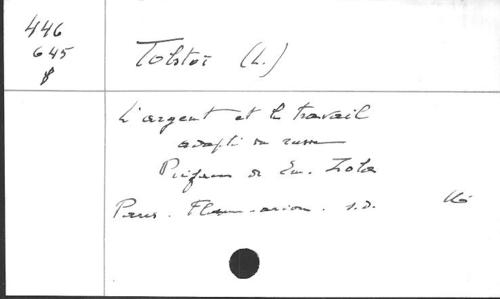 446
645
Tolstoï (L.)
L'argent et le travail
adapté du russe
Préface de Em. Zola
Paris. Flammarion. s.d.